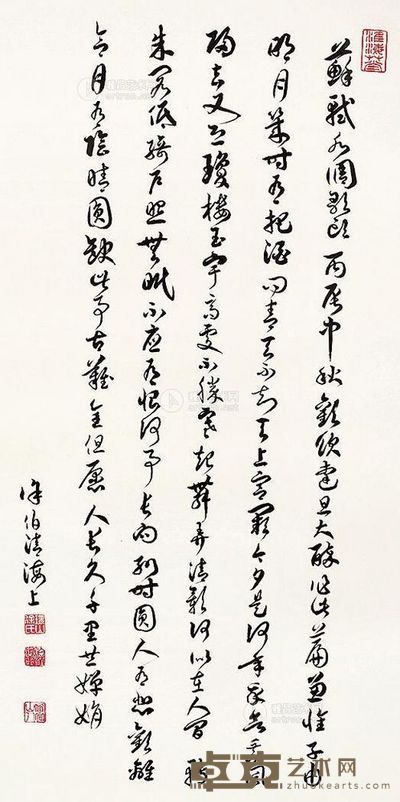 蘇軾水調歌頭丙辰中秋歡飲達旦大醉作此篇兼懷子由
明月幾時有把酒問青天不知天上宮闕今夕是何年我欲乘風
歸去又恐瓊樓玉宇高處不勝寒起舞弄清影何似在人間轉
朱閣低綺戶照無眠不應有恨何事長向別時圓人有悲歡離
合月有陰晴圓缺此事古難全但願人長久千里共嬋娟
徐伯清海上
艺术网
zhuokearts.com